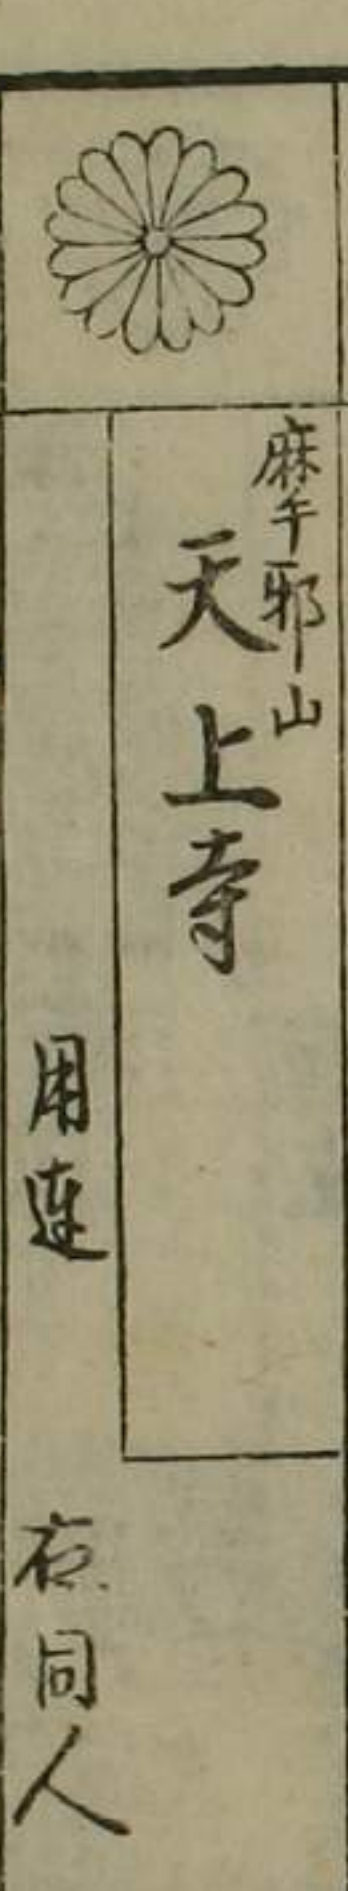 摩耶山
天上寺
用達
右同人